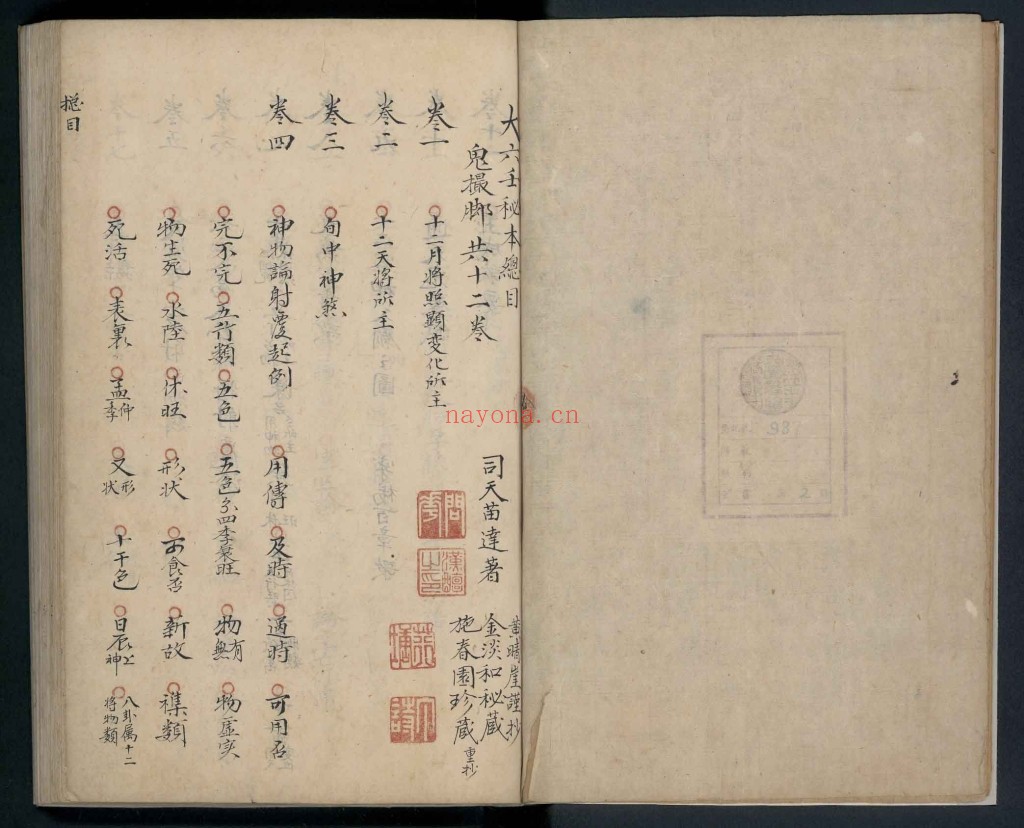 大六壬秘本總目
鬼撮脚 共十二卷
司天苗達著
黃晴崖謹抄
金淡和秘藏
施春園珍藏 重抄
卷一 十二月將照顯变化所主
卷二 十二天將所主
卷三 旬中神煞
卷四 神物論射覆起例 用傳 及時 過時 可用否
完不完 五行類 五色 五色分四季衰旺 物有無 物虛实
物生死 水陸 休旺 形状 可食否 新故 襍類
死活 表裏 孟仲季 又形状 十干色 日辰上神 八卦属十二将物類
總目
nayona.cn
98
20